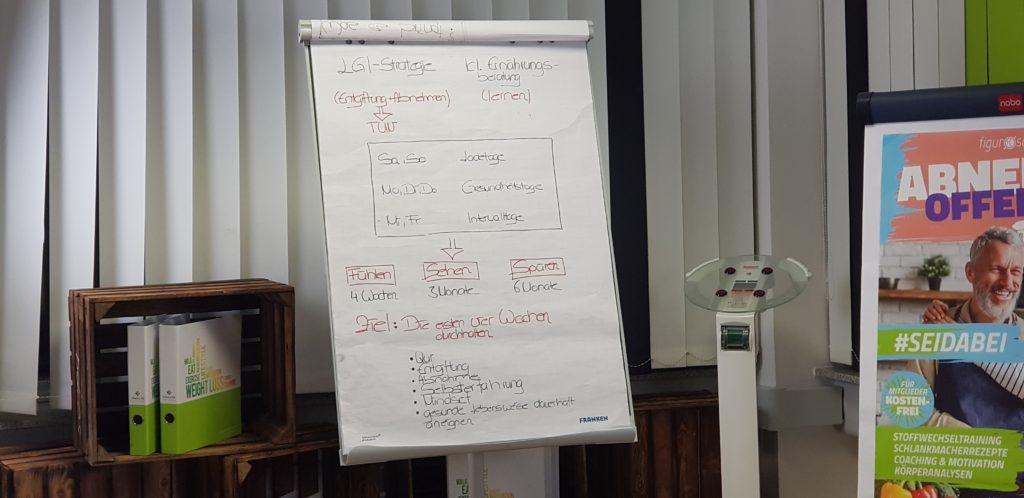 LGI-Strategie
kl. Ernährungs-
beratung
(Entgiftung + Abnehmen)
(lernen)
TUN
Sa, So Ladetage
Mo, Di, Do Gesundheitstage
Mi, Fr Intervalltage
Fühlen Sehen Spüren
4 Wochen 3 Monate 6 Monate
Ziel: Die ersten vier Wochen
durchhalten
• Kur
• Entgiftung
• Abnahme
• Selbsterfahrung
• Mindset
• gesunde Lebensweise dauerhaft
aneignen
FRANKEN
WALK
EAT
EXERCISE
WEIGHT LOSS
nobo
figur
ABNE
OFFE
#SEIDABEI
FÜR
MITGLIEDER
KOSTEN-
FREI
STOFFWECHSELTRAINING
SCHLANKMACHERREZEPTE
COACHING & MOTIVATION
KÖRPERANALYSEN